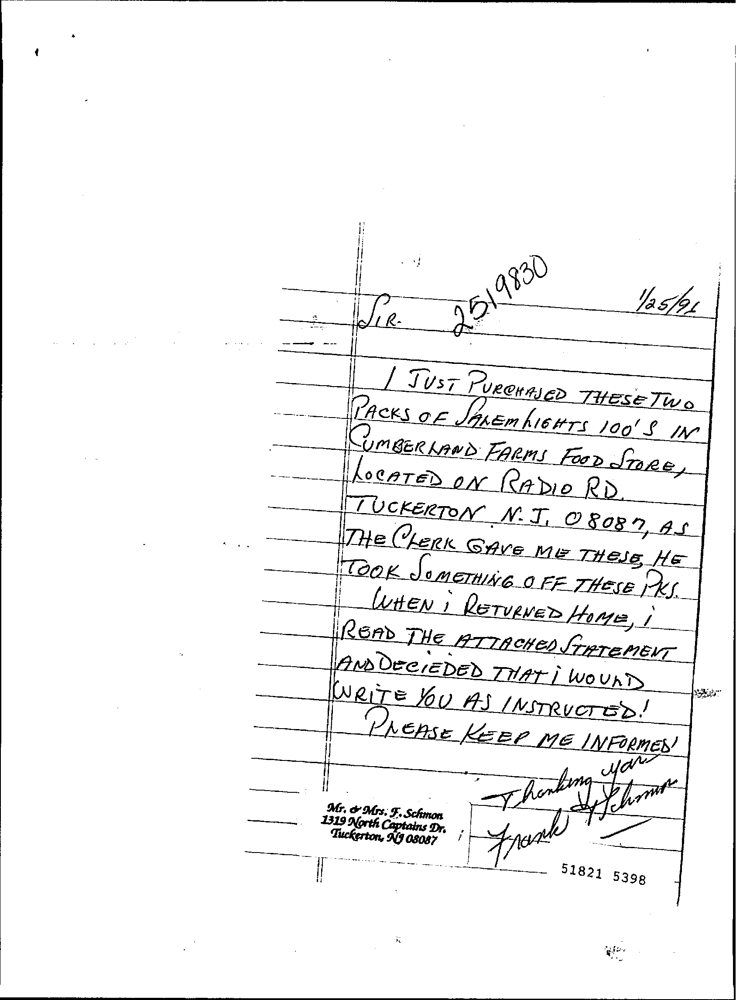 2519830
1/25/91
SIR.
I JUST PURCHASED THESE TWO
PACKS OF SALEM LIGHTS 100'S IN
CUMBERLAND FARMS FOOD STORE,
LOCATED ON RADIO RD.
TUCKERTON N.J. 08087, AS
THE CLERK GAVE ME THESE, HE
TOOK SOMETHING OFF THESE PKS.
WHEN i RETURNED HOME, i
READ THE ATTACHED STATEMENT
AND DECIEDED THAT i WOULD
WRITE YOU AS INSTRUCTED!
PLEASE KEEP ME INFORMED!
Thanking you
Frank Schmon
Mr. & Mrs. F. Schmon
1319 North Captains Dr.
Tuckerton, NJ 08087
51821 5398